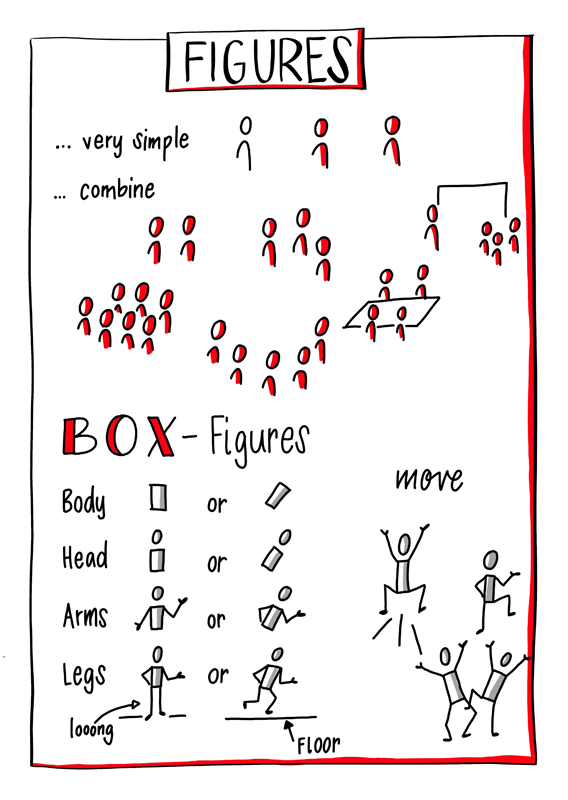 FIGURES
... very simple
... combine
BOX - Figures
move
Body or
Head or
Arms or
Legs or
looong
FLOOR